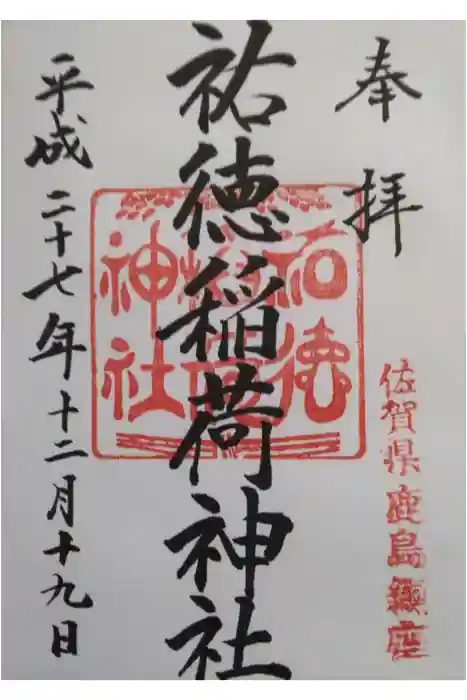 奉拝
佐賀県鹿島鎮座
祐徳稲荷神社
祐徳
稲荷
神社
平成二十七年十二月十九日